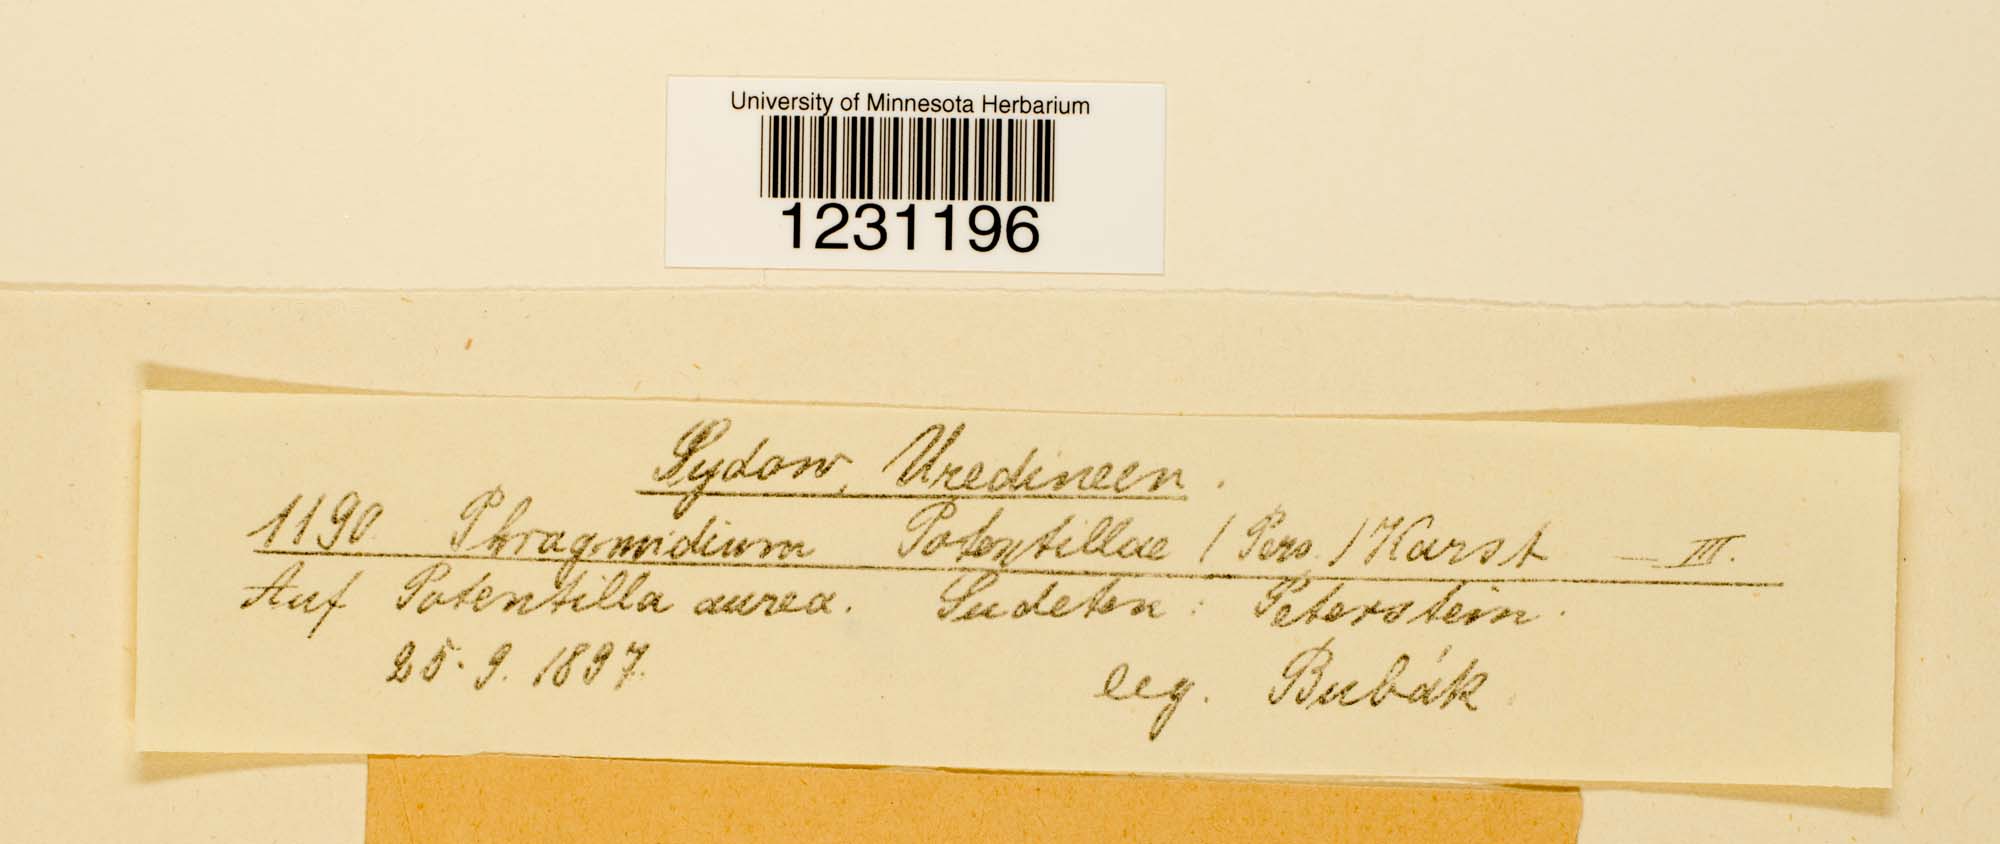 University of Minnesota Herbarium
1231196
Sydow, Uredineen.
1190. Phragmidium Potentillae (Pers.) Karst — III.
Auf Potentilla aurea. Sudeten: Peterstein.
25.9.1897. leg. Bubák